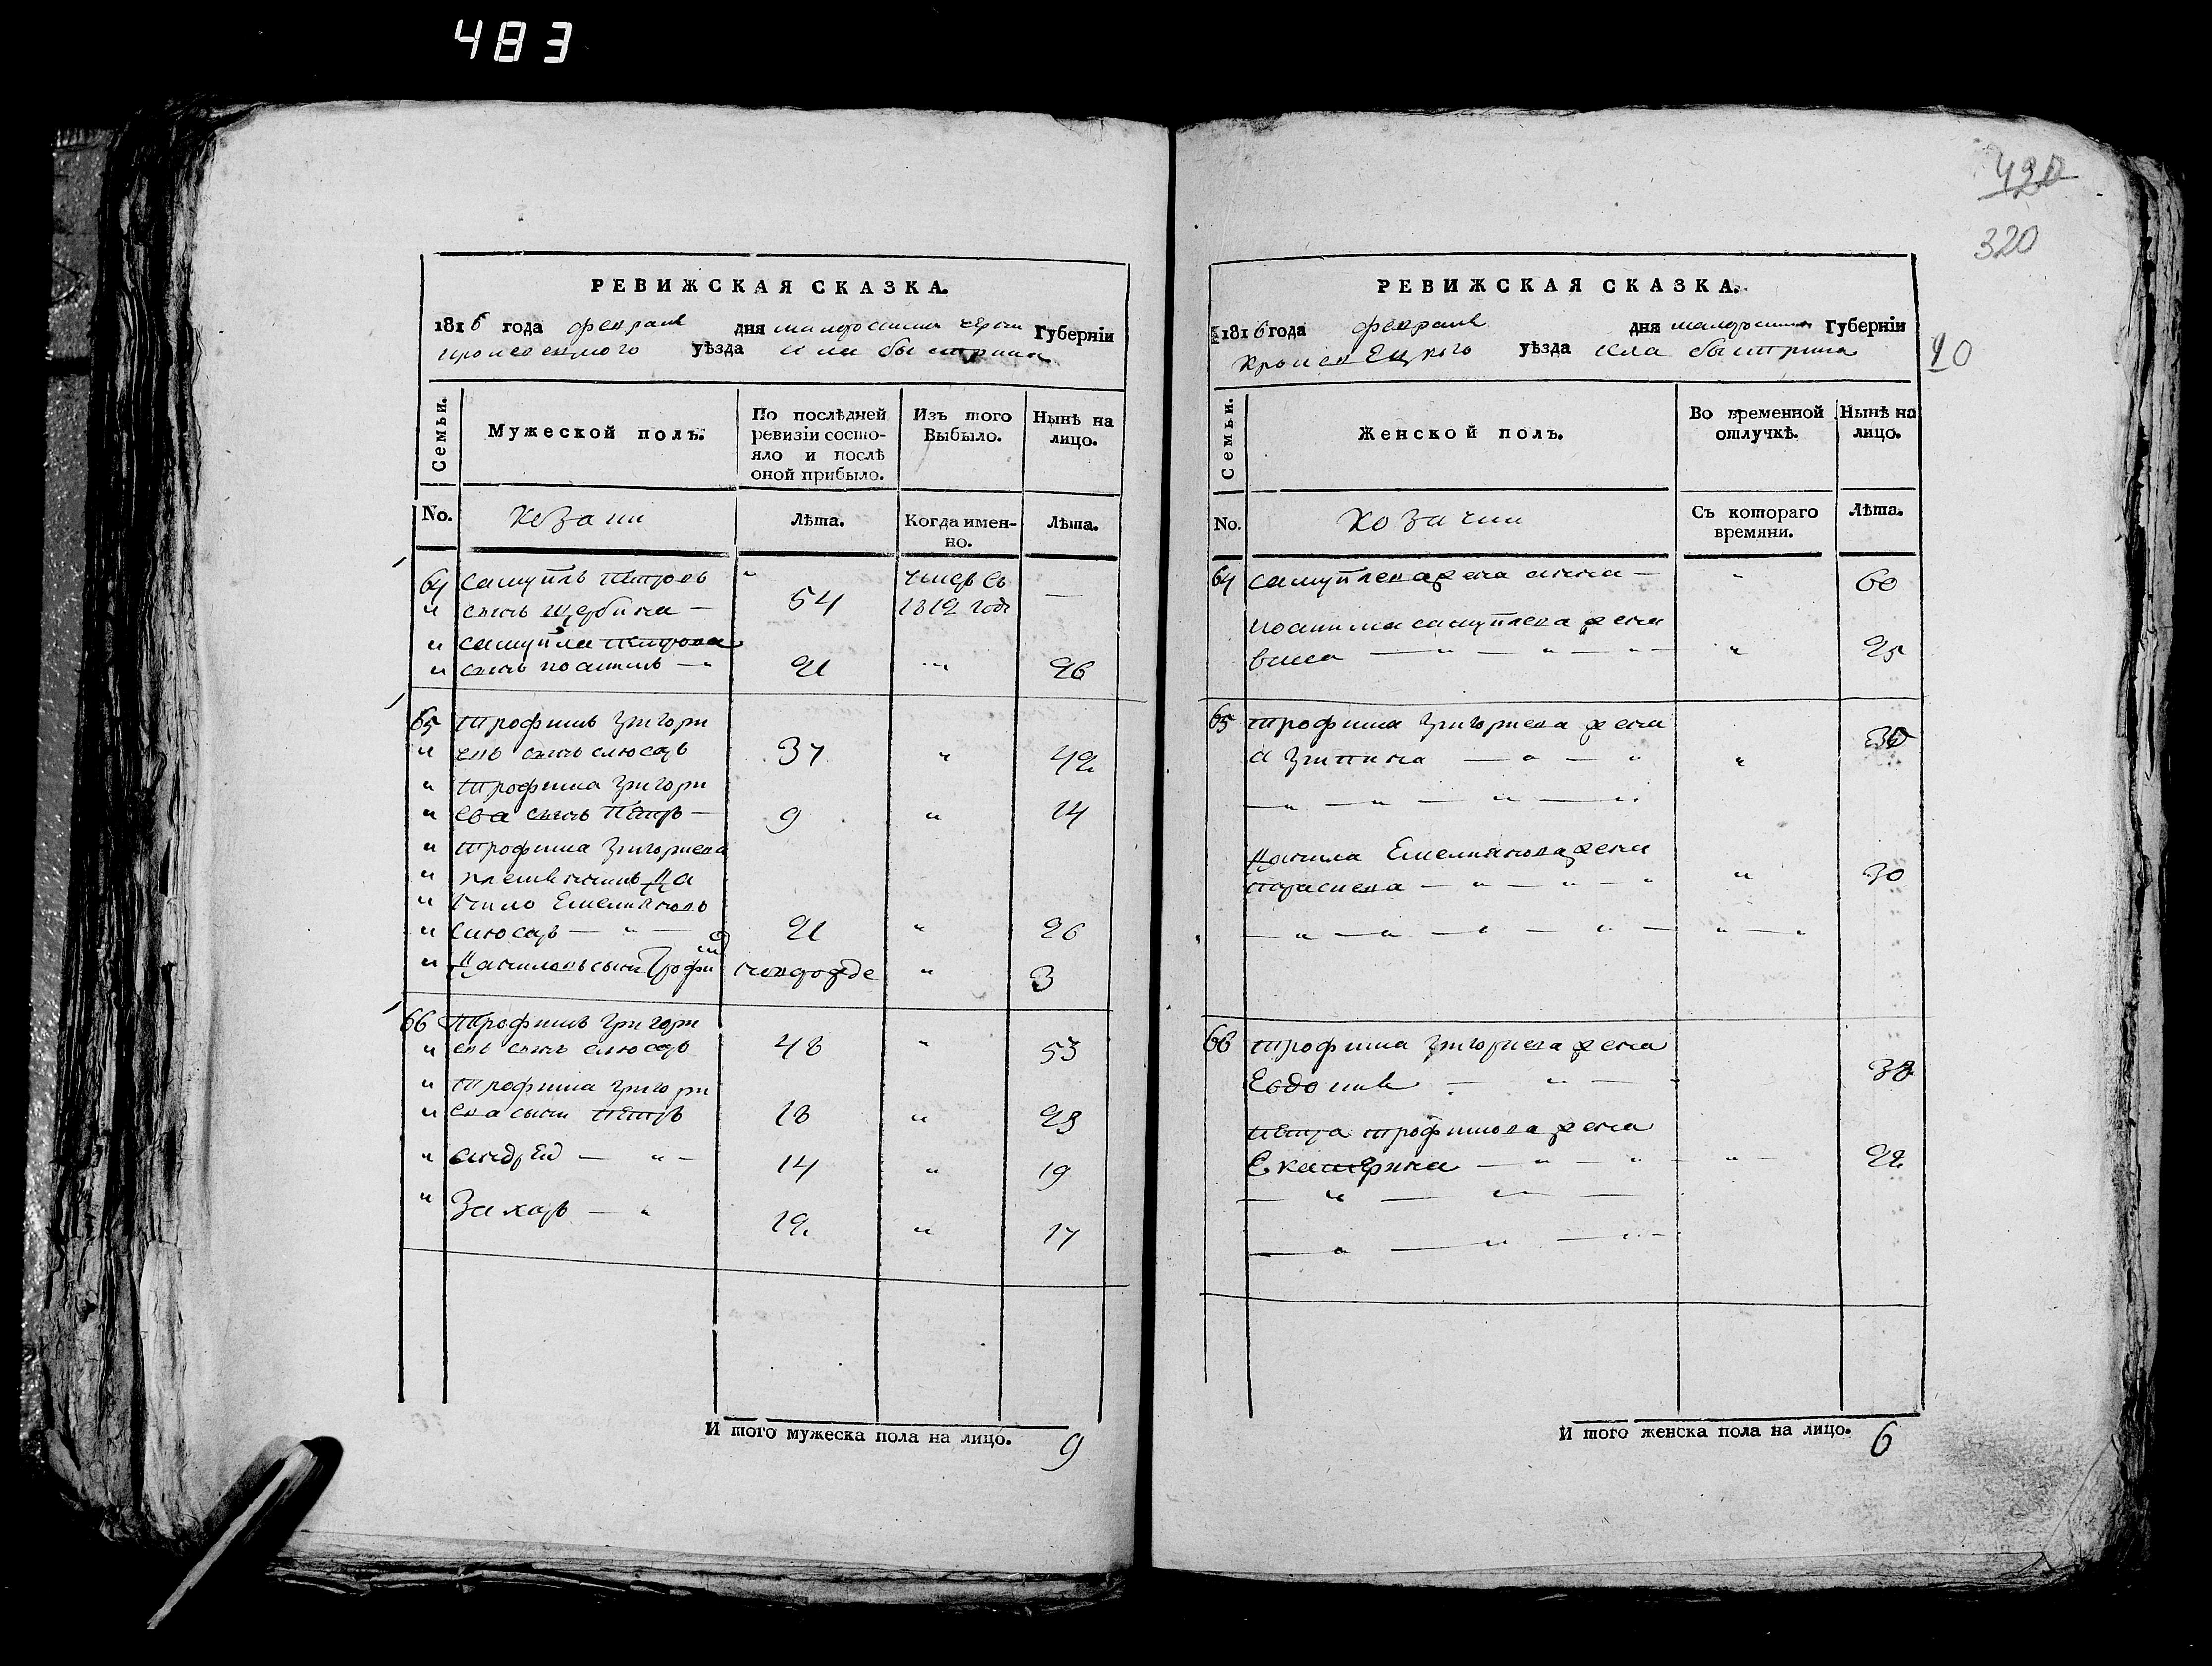 483
420
320
РЕВИЖСКАЯ СКАЗКА.
1816 года февраля дня малороссийской черниг Губерніи
кролевецкого уѣзда села быстрика
Семьи.
Мужеской полъ.
По послѣдней ревизіи состояло и послѣ оной прибыло.
Изъ того Выбыло.
Нынѣ на лицо.
No.
козаки
Лѣта.
Когда именно.
Лѣта.
64 самуйлъ петровъ " умерв въ
" сынъ щербина — 54 1812 годе —
" самуйла петрова
" сынъ иоакимъ — " 21 " 26
65 трофимъ григори
" евъ сынъ слюсарь 37 " 42
" трофима григори
" ева сынъ петръ — 9 " 14
" трофима григориева
" племянникъ да
" нило Емелияновъ
" слюсарь — " — 21 " 26
" даниловъ сынъ трофим новорожде " 3
66 трофимъ григори
" евъ сынъ слюсарь 48 " 53
" трофима григори
" ева сынъ петръ 18 " 23
" андрей — " — 14 " 19
" Захаръ — " 12 " 17
И того мужеска пола на лицо. 9
РЕВИЖСКАЯ СКАЗКА.
1816 года февраля дня малороссийск Губерніи
кролевецкого уѣзда села быстрика
10
Семьи.
Женской полъ.
Во временной отлучкѣ.
Нынѣ на лицо.
No.
козачки
Съ котораго времяни.
Лѣта.
64 самуйлова жена анна — " 60
иоакима самуйлова жена
— " — " — " — " 25
65 трофима григориева жена 30
агрипина — " — " "
— " — " — " — "
данила Емелиянова жена
параскева — " — " — " " 30
— " — " — " — " — " — "
66 трофима григориева жена
Евдокия — " — 38
петра трофимова жена
Екатерина — " — " — " — 22
— " — " —
— " — " — " —
И того женска пола на лицо. 6